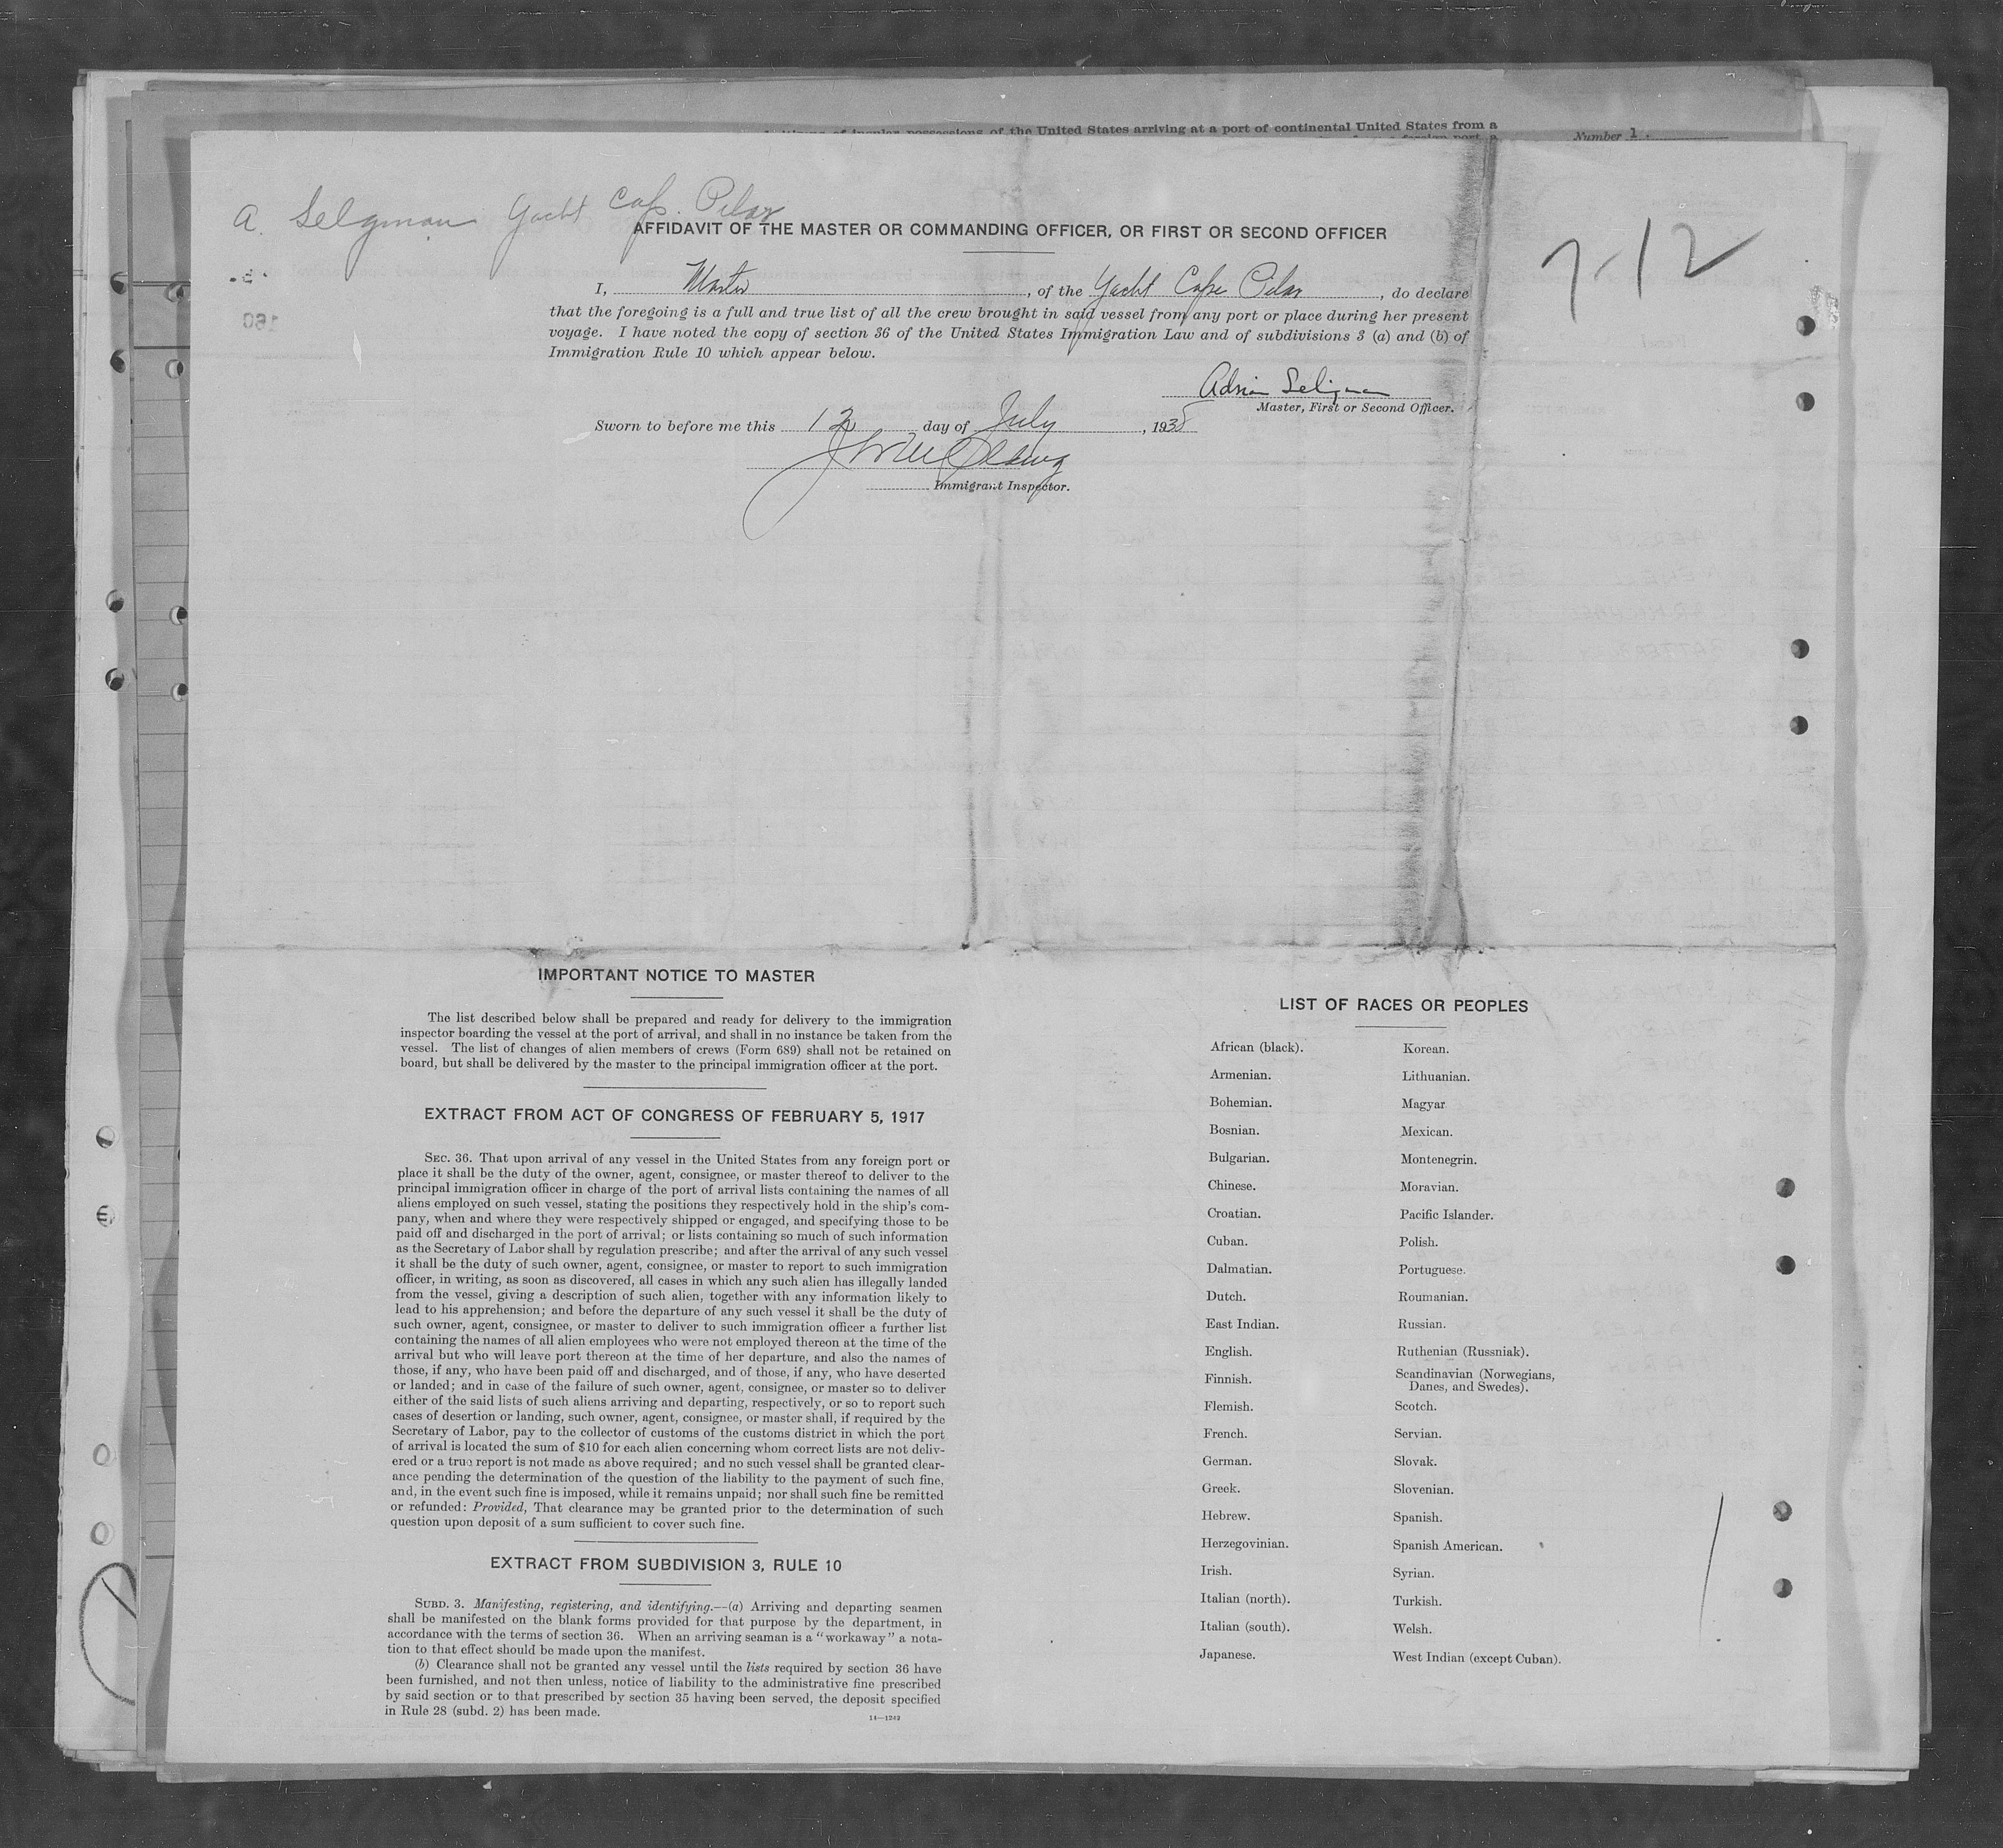 of insular possessions of the United States arriving at a port of continental United States from a
Number 1
A. Selgman Yacht Cap. Pilar
7-12
AFFIDAVIT OF THE MASTER OR COMMANDING OFFICER, OR FIRST OR SECOND OFFICER
I, Master, of the Yacht Cape Pilar, do declare
that the foregoing is a full and true list of all the crew brought in said vessel from any port or place during her present
voyage. I have noted the copy of section 36 of the United States Immigration Law and of subdivisions 3 (a) and (b) of
Immigration Rule 10 which appear below.
Adrian Seligman
Master, First or Second Officer.
Sworn to before me this 12 day of July, 1938
Immigrant Inspector.
IMPORTANT NOTICE TO MASTER
The list described below shall be prepared and ready for delivery to the immigration
inspector boarding the vessel at the port of arrival, and shall in no instance be taken from the
vessel. The list of changes of alien members of crews (Form 689) shall not be retained on
board, but shall be delivered by the master to the principal immigration officer at the port.
EXTRACT FROM ACT OF CONGRESS OF FEBRUARY 5, 1917
SEC. 36. That upon arrival of any vessel in the United States from any foreign port or
place it shall be the duty of the owner, agent, consignee, or master thereof to deliver to the
principal immigration officer in charge of the port of arrival lists containing the names of all
aliens employed on such vessel, stating the positions they respectively hold in the ship's com-
pany, when and where they were respectively shipped or engaged, and specifying those to be
paid off and discharged in the port of arrival; or lists containing so much of such information
as the Secretary of Labor shall by regulation prescribe; and after the arrival of any such vessel
it shall be the duty of such owner, agent, consignee, or master to report to such immigration
officer, in writing, as soon as discovered, all cases in which any such alien has illegally landed
from the vessel, giving a description of such alien, together with any information likely to
lead to his apprehension; and before the departure of any such vessel it shall be the duty of
such owner, agent, consignee, or master to deliver to such immigration officer a further list
containing the names of all alien employees who were not employed thereon at the time of the
arrival but who will leave port thereon at the time of her departure, and also the names of
those, if any, who have been paid off and discharged, and of those, if any, who have deserted
or landed; and in case of the failure of such owner, agent, consignee, or master so to deliver
either of the said lists of such aliens arriving and departing, respectively, or so to report such
cases of desertion or landing, such owner, agent, consignee, or master shall, if required by the
Secretary of Labor, pay to the collector of customs of the customs district in which the port
of arrival is located the sum of $10 for each alien concerning whom correct lists are not deliv-
ered or a true report is not made as above required; and no such vessel shall be granted clear-
ance pending the determination of the question of the liability to the payment of such fine,
and, in the event such fine is imposed, while it remains unpaid; nor shall such fine be remitted
or refunded: Provided, That clearance may be granted prior to the determination of such
question upon deposit of a sum sufficient to cover such fine.
EXTRACT FROM SUBDIVISION 3, RULE 10
SUBD. 3. Manifesting, registering, and identifying.—(a) Arriving and departing seamen
shall be manifested on the blank forms provided for that purpose by the department, in
accordance with the terms of section 36. When an arriving seaman is a "workaway" a nota-
tion to that effect should be made upon the manifest.
(b) Clearance shall not be granted any vessel until the lists required by section 36 have
been furnished, and not then unless, notice of liability to the administrative fine prescribed
by said section or to that prescribed by section 35 having been served, the deposit specified
in Rule 28 (subd. 2) has been made.
14—1249
LIST OF RACES OR PEOPLES
African (black).
Armenian.
Bohemian.
Bosnian.
Bulgarian.
Chinese.
Croatian.
Cuban.
Dalmatian.
Dutch.
East Indian.
English.
Finnish.
Flemish.
French.
German.
Greek.
Hebrew.
Herzegovinian.
Irish.
Italian (north).
Italian (south).
Japanese.
Korean.
Lithuanian.
Magyar
Mexican.
Montenegrin.
Moravian.
Pacific Islander.
Polish.
Portuguese.
Roumanian.
Russian.
Ruthenian (Russniak).
Scandinavian (Norwegians,
Danes, and Swedes).
Scotch.
Servian.
Slovak.
Slovenian.
Spanish.
Spanish American.
Syrian.
Turkish.
Welsh.
West Indian (except Cuban).